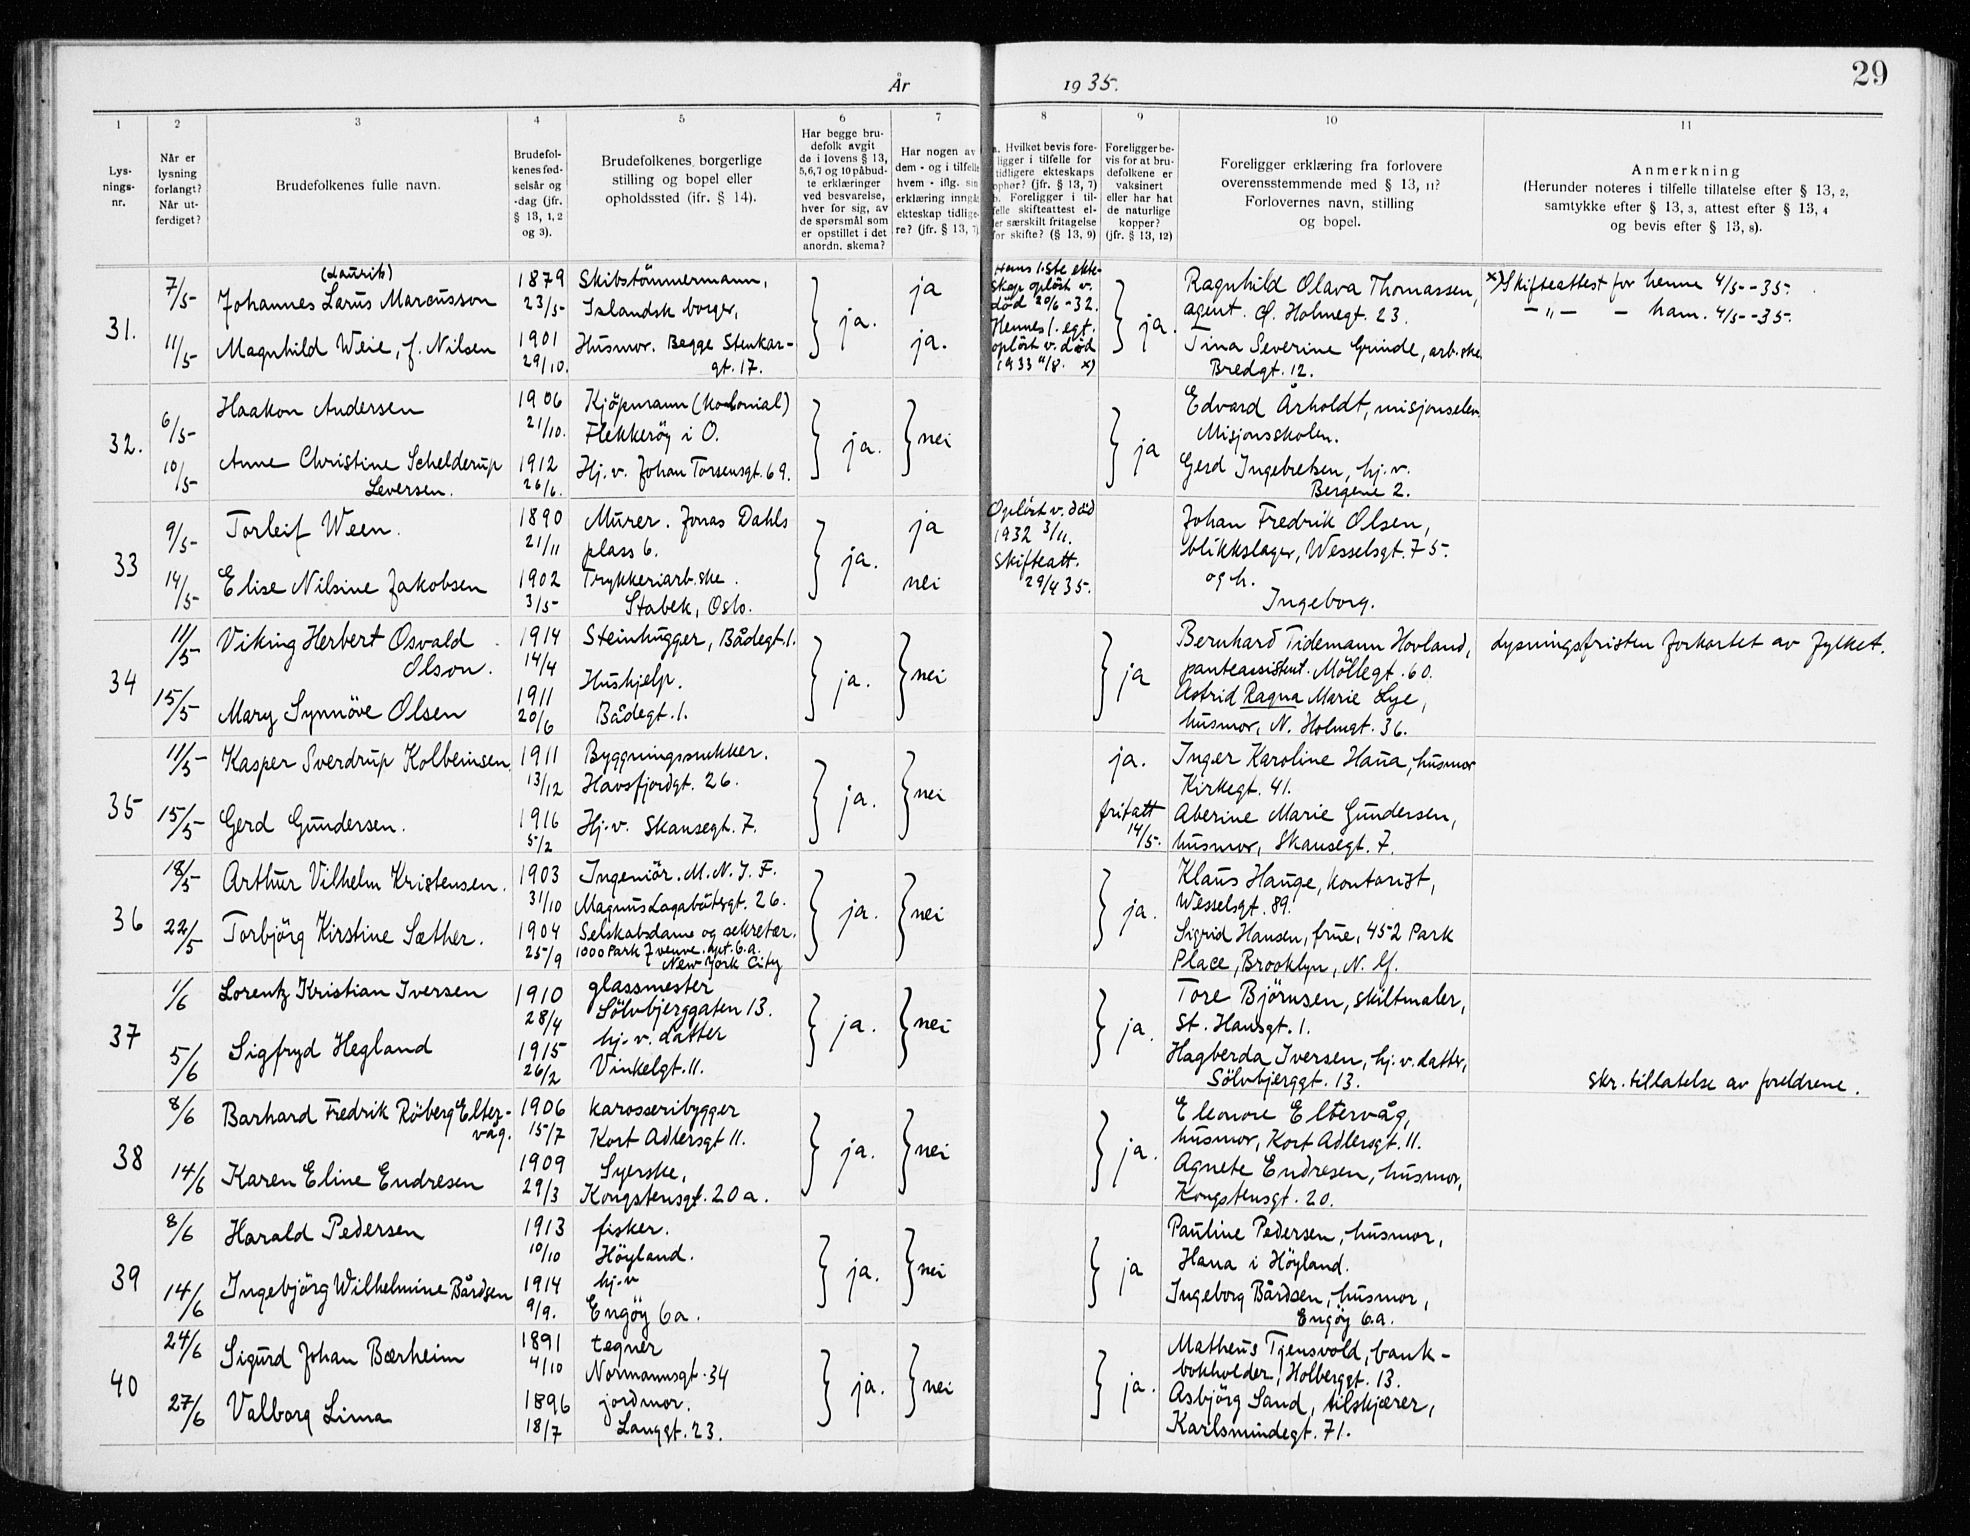 År 1935.
29
1 2 3 4 5 6 7 8 9 10 11
Lys-
nings-
nr.
Når er
lysning
forlangt?
Når ut-
ferdiget?
Brudefolkenes fulle navn.
Brudefol-
kenes fød-
selsår og
-dag (jfr.
§ 13, 1, 2
og 3).
Brudefolkenes borgerlige
stilling og bopel eller
opholdssted (jfr. § 14).
Har begge bru-
defolk avgit
de i lovens § 13,
5,6,7 og 10 påbud-
te erklæringer
ved besvarelse,
hver for sig, av
de spørsmål som
er opstillet i det
anordn. skema?
Har nogen av
dem - og i tilfelle
hvem - iflg. sin
erklæring inngåt
ekteskap tidlige-
re? (jfr. § 13, 7)
a. Hvilket bevis fore-
ligger i tilfelle for
tidligere ekteskaps
ophør? (jfr. § 13, 7)
b. Foreligger i til-
felle skifteattest el-
ler særskilt fritagelse
for skifte? (§ 13, 9)
Foreligger be-
vis for at bru-
defolkene er
vaksinert
eller har hat
de naturlige
kopper?
(jfr. § 13, 12)
Foreligger erklæring fra forlovere
overensstemmende med § 13, 11?
Forlovernes navn, stilling
og bopel.
Anmerkning
(Herunder noteres i tilfelle tillatelse efter § 13, 2,
samtykke efter § 13, 3, attest efter § 13, 4
og bevis efter § 13, 8).
31.
7/5
11/5
(Laurits)
Johannes Larus Marcusson
Magnhild Weie, f. Nilsen
1879
23/5
1901
29/10.
Skibstømmermann,
Islandsk borger,
Husmor. Begge Stenkar-
gt. 17.
ja.
ja
ja.
Hans 1ste ekte-
skap opløst v.
död 20/6 -32.
Hennes 1. egt.
opløst v. död
1933 11/8. x)
ja
Ragnhild Olava Thomassen,
agent. Ø. Holmegt. 23.
Tina Severine Grinde, arb.ske
Bredgt. 12.
x) Skifteattest for henne 4/5 - 35.
- " - - ham. 4/5 - 35.
32.
6/5
10/5
Haakon Andersen
Anne Christine Schelderup
Leversen.
1906
21/10.
1912
26/6.
Kjöpmann (Kolonial)
Flekkeröy i O.
Hj. v. Johan Torsensgt. 69.
ja.
nei
ja
Edvard Årholdt, misjonselev
Misjonsskolen.
Gerd Ingebretsen, hj. v.
Bergene 2.
33
9/5
14/5
Torleif Ween.
Elise Nilsine Jakobsen
1890
21/11
1902
3/5
Murer. Jonas Dahls
plass 6.
Trykkeriarb.ske.
Stabek, Oslo.
ja.
ja
nei
Opløst v. död
1932 3/11.
Skifteatt.
29/4 35.
Johan Fredrik Olsen,
blikkslager, Wesselsgt. 75.
og h.
Ingeborg.
34
11/5
15/5
Viking Herbert Osvald
Olson.
Mary Synnöve Olsen
1914
14/4
1911
20/6
Steinhugger, Bådegt. 1.
Hushjelp.
Bådegt. 1.
ja.
nei
ja
Bernhard Tidemann Hovland,
panteassistent. Möllegt. 60.
Astrid Ragna Marie Lye,
husmor, N. Holmgt. 36.
Lysningsfristen forkortet av fylket.
35
11/5
15/5
Kasper Sverdrup Kolbeinsen.
Gerd Gundersen.
1911
13/12
1916
5/2
Byggningssnekker.
Havsfjordgt. 26.
Hj. v. Skansegt. 7.
ja.
nei
ja.
fritatt
14/5.
Inger Karoline Haua, husmor
Kirkegt. 41.
Aberine Marie Gundersen,
husmor, Skansegt. 7.
36
18/5
22/5
Arthur Vilhelm Kristensen.
Torbjörg Kirstine Sæther.
1903
31/10
1904
25/9
Ingeniör. M. N. I. F.
Magnus Lagabötersgt. 26.
Selskabsdame og sekretær.
1000 Park 7 venue. apt. 6.a.
New York City
ja.
nei
ja.
Klaus Hauge, kontorist,
Wesselsgt. 89.
Sigrid Hansen, frue, 452 Park
Place, Brooklyn, N. Y.
37
1/6
5/6
Lorentz Kristian Iversen
Sigfryd Hegland
1910
28/4
1915
26/2
glassmester
Sölvbjerggaten 13.
hj. v. datter
Vinkelgt. 11.
ja.
nei
ja.
Tore Bjørnsen, skiltmaler,
St. Hansgt. 1.
Hagberda Iversen, hj. v. datter,
Sölvbjerggt. 13.
skr. tillatelse av foreldrene.
38
8/6
14/6
Barhard Fredrik Röberg Elter-
våg.
Karen Eline Endresen
1906
15/7
1909
29/3
karosseribygger
Kort Adlersgt 11.
Syerske,
Kongstensgt. 20 a.
ja.
nei
ja.
Eleonore Eltervåg,
husmor, Kort Adlersgt. 11.
Agnete Endresen, husmor,
Kongstensgt. 20.
39
8/6
14/6
Harald Pedersen
Ingebjörg Wilhelmine Bårdsen
1913
10/10
1914
9/9.
fisker.
Höyland.
hj. v
Engöy 6a.
ja.
nei
ja
Pauline Pedersen, husmor,
Hana i Höyland.
Ingeborg Bårdsen, husmor,
Engöy 6.a.
40
24/6
27/6
Sigurd Johan Bærheim
Valborg Lima
1891
4/10
1896
18/7
tegner
Normannsgt. 34
jordmor.
Langgt. 23.
ja.
nei
ja.
Matheus Tjensvold, bank-
bokholder, Holberggt. 13.
Asbjörg Sand, tilskjærer,
Karlsmindegt. 71.